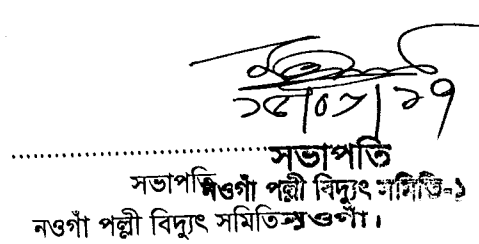 সভাপতি
সভাপতি
নওগাঁ পল্লী বিদ্যুৎ সমিতি-১
নওগাঁ পল্লী বিদ্যুৎ সমিতি
নওগাঁ।